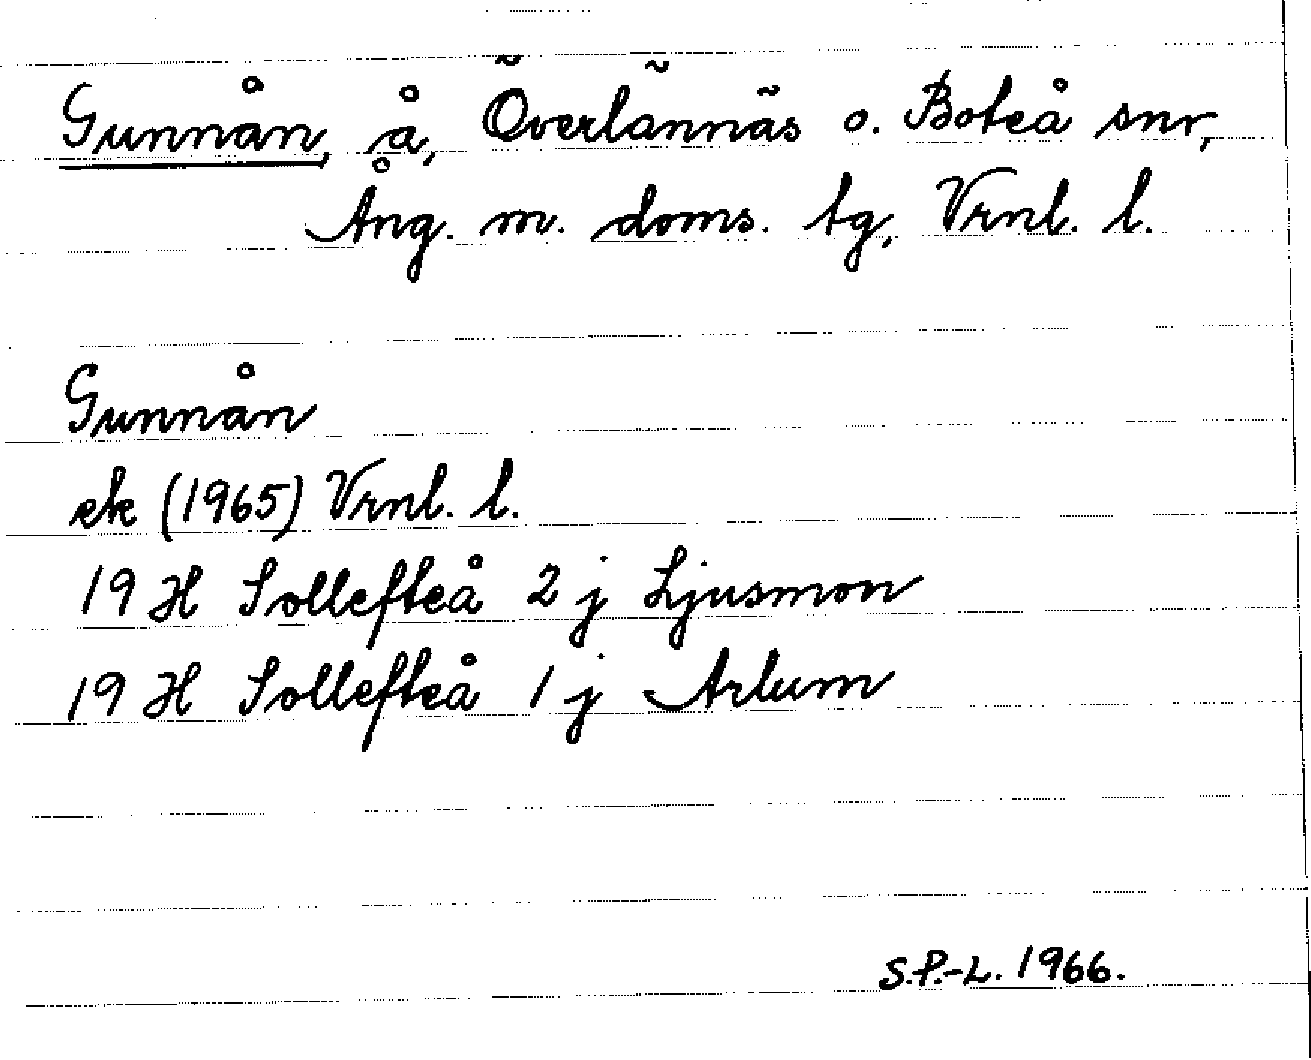 Gunnån, å, Överlännäs o. Boteå snr,
Ång. m. doms. tg, Vrnl. l.
Gunnån
ek (1965) Vrnl. l.
19 H Sollefteå 2 j Ljusmon
19 H Sollefteå 1 j Arlum
S.P.-L. 1966.